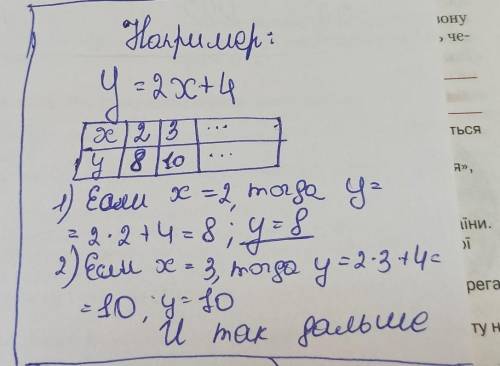 Например:
y = 2x+4
x 2 3 ...
y 8 10 ...
1) Если x = 2, тогда y=
= 2·2+4=8; y=8
2) Если x = 3, тогда y=2·3+4=
=10, y=10
И так дальше
ону
, че-
ться
я»,
їни.
ої
рега
ту н